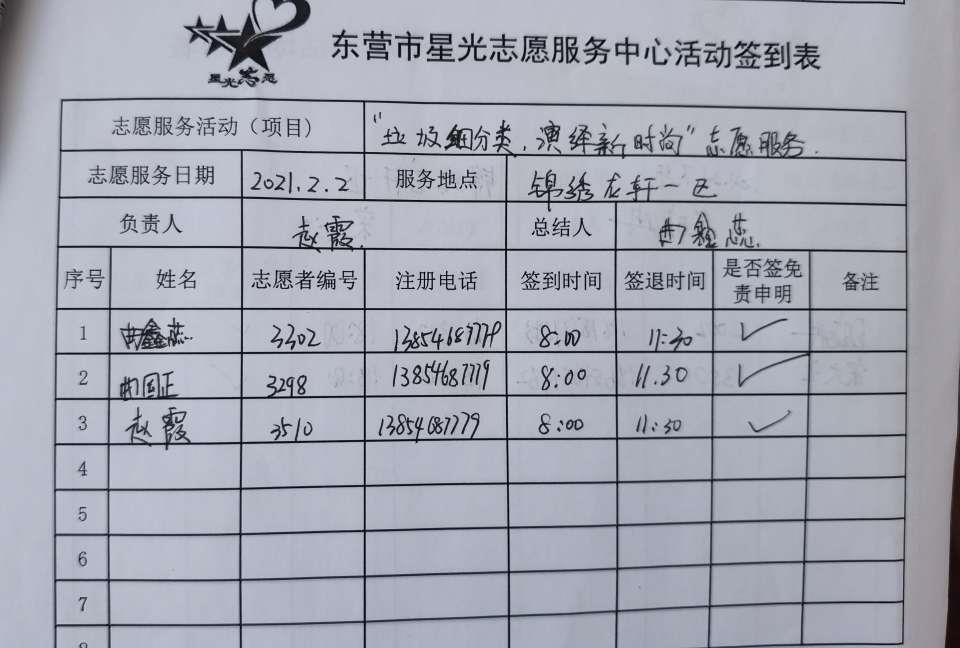 星光志愿
东营市星光志愿服务中心活动签到表
志愿服务活动（项目） "垃圾细分类，演绎新时尚"志愿服务.
志愿服务日期 2021.2.2 服务地点 锦绣龙轩一区
负责人 赵霞. 总结人 曲鑫蕊.
序号 姓名 志愿者编号 注册电话 签到时间 签退时间 是否签免责申明 备注
1 曲鑫蕊. 3302 13854687779 8:00 11:30 ✓
2 曲国正 3298 13854687779 8:00 11.30 ✓
3 赵霞 3510 13854687779 8:00 11:30 ✓
4
5
6
7